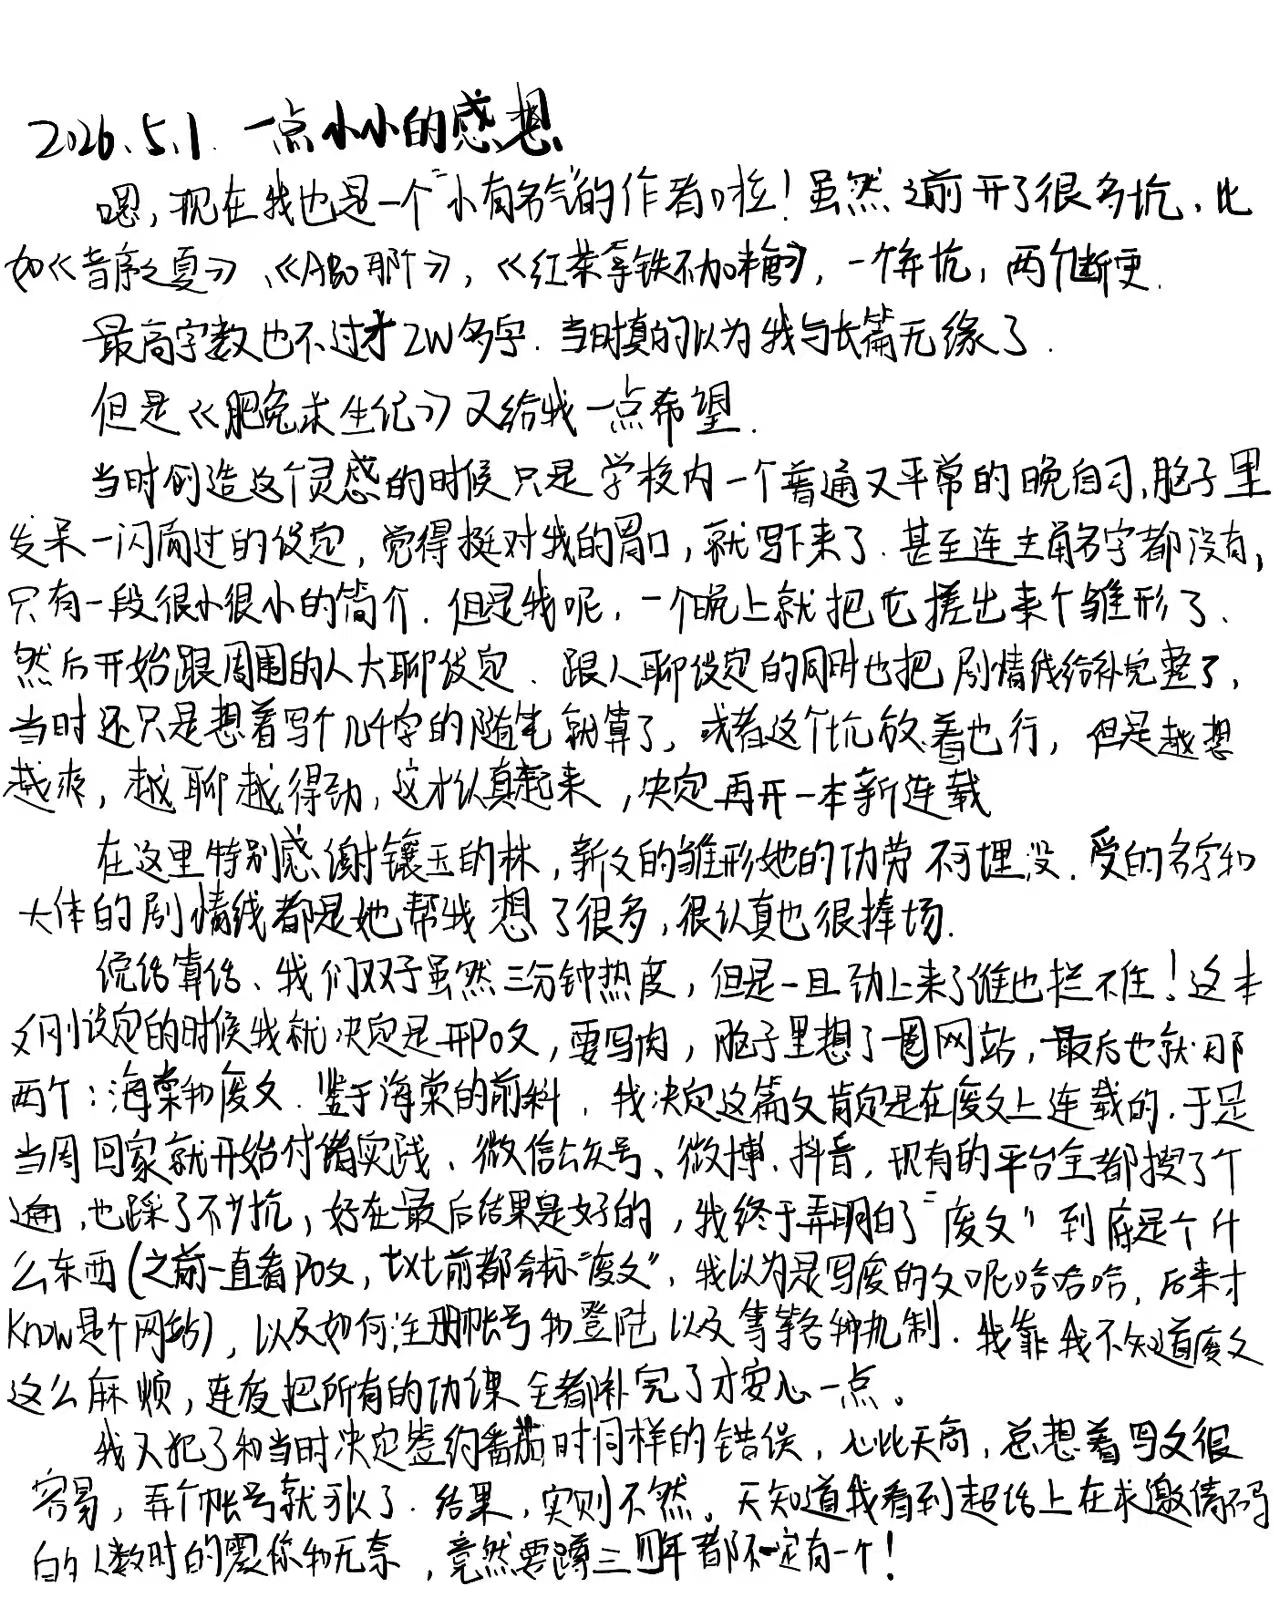 2026.5.1. 一点小小的感想
嗯,现在我也是一个"小有名气"的作者啦!虽然之前开了很多坑,比
如《音序之夏》、《ABO那个》,《红茶拿铁不加糖》,一个弃坑,两个断更.
最高字数也不过才2W多字.当时真的以为我与长篇无缘了.
但是《肥兔求生记》又给我一点希望.
当时创造这个灵感的时候只是学校内一个普通又平常的晚自习,脑子里
发呆一闪而过的设定,觉得挺对我的胃口,就写下来了.甚至连主角名字都没有,
只有一段很小很小的简介.但是我呢,一个晚上就把它搓出来个雏形了.
然后开始跟周围的人大聊设定.跟人聊设定的同时也把剧情线给补完整了,
当时还只是想着写个几千字的随笔就算了,或者这个坑放着也行,但是越想
越爽,越聊越得劲,这才认真起来,决定再开一本新连载
在这里特别感谢镶玉的林,新文的雏形她的功劳不可埋没.受的名字和
大体的剧情线都是她帮我想了很多,很认真也很捧场.
侃话算话、我们双子虽然三分钟热度,但是一旦劲上来了谁也拦不住!这本
文刚设定的时候我就决定是要PO文,要写肉,脑子里想了一圈网站,最后也就那
两个:海棠和废文.鉴于海棠的前科,我决定这篇文肯定是在废文上连载的.于是
当周回家就开始付诸实践、微信公众号、微博、抖音,现有的平台全都搜了个
遍,也踩了不少坑,好在最后结果是好的,我终于弄明白了"废文"到底是个什
么东西(之前一直看PO文,txt前都会标"废文",我以为是写废的文呢哈哈哈,后来才
know是个网站),以及如何注册帐号和登陆以及等等各种机制.我靠我不知道废文
这么麻烦,连夜把所有的功课全都补完了才安心一点。
我又犯了和当时决定签约番茄时同样的错误,心比天高,总想着写文很
容易,弄个帐号就可以了.结果,实则不然。天知道我看到超话上在求邀请码
的人数时的震惊和无奈,竟然要蹲三四年都不一定有一个!